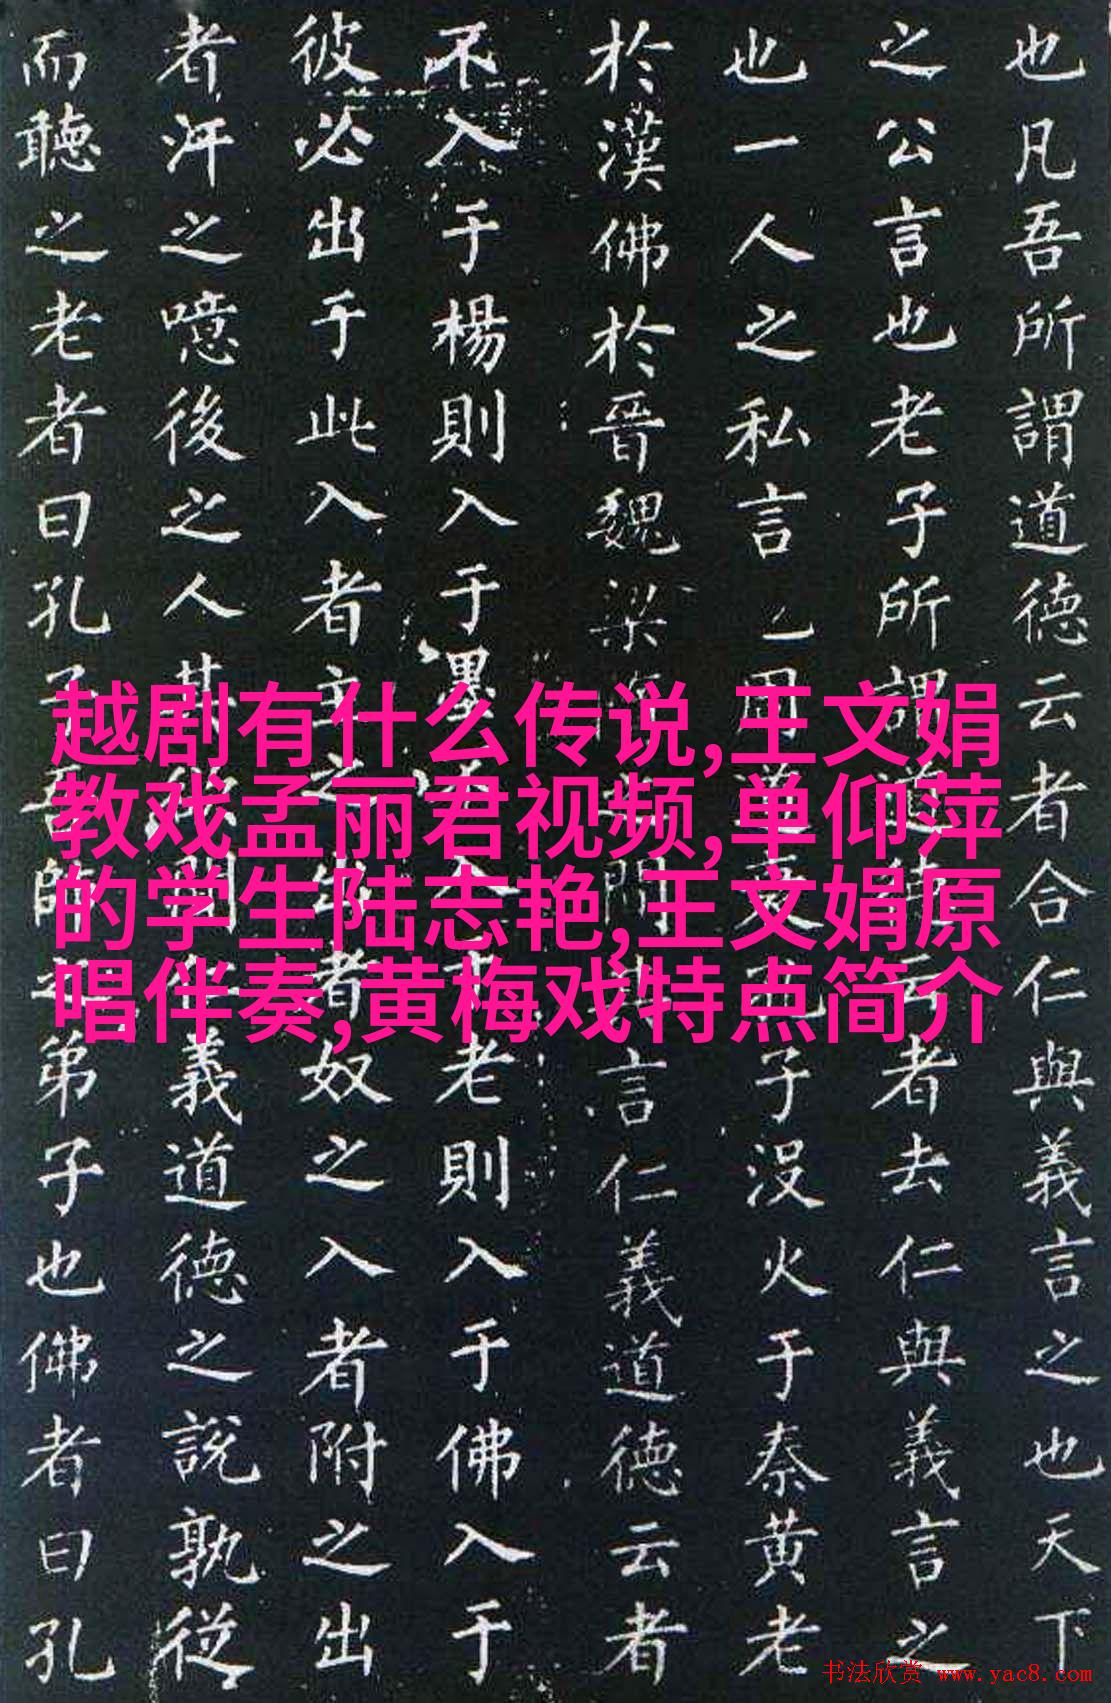 也凡吾所謂道德云者合仁與義言之也天下
之公言也老子所謂道德云者去仁與義言之
也一人之私言也周道衰孔子没火于秦黄老
於漢佛於晉魏梁隋之間其言仁義道德云者
不入于楊則入于墨不入于老則入于佛入于
彼必出于此入者主之出者奴之入者附之出
者汙之噫後之人其欲聞仁義道德之說孰從
而聽之老者曰孔子吾師之弟子也佛者曰孔
越剧有什么传说,王文娟
教戏孟丽君视频,单仰萍
的学生陆志艳,王文娟原
唱伴奏,黄梅戏特点简介
书法欣赏 www.yac8.com